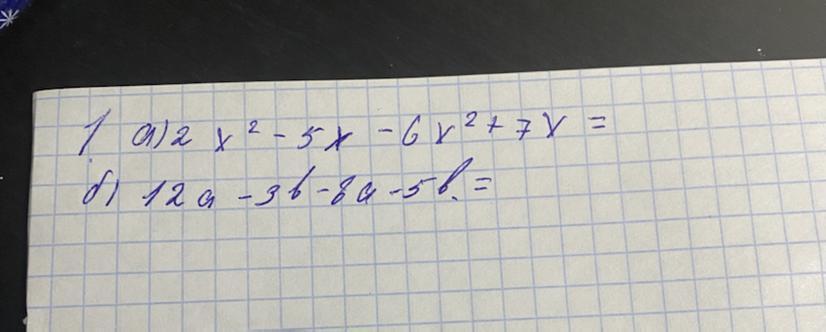 1 а) 2x² - 5x - 6x² + 7x =
б) 12a - 3b - 8a - 5b =